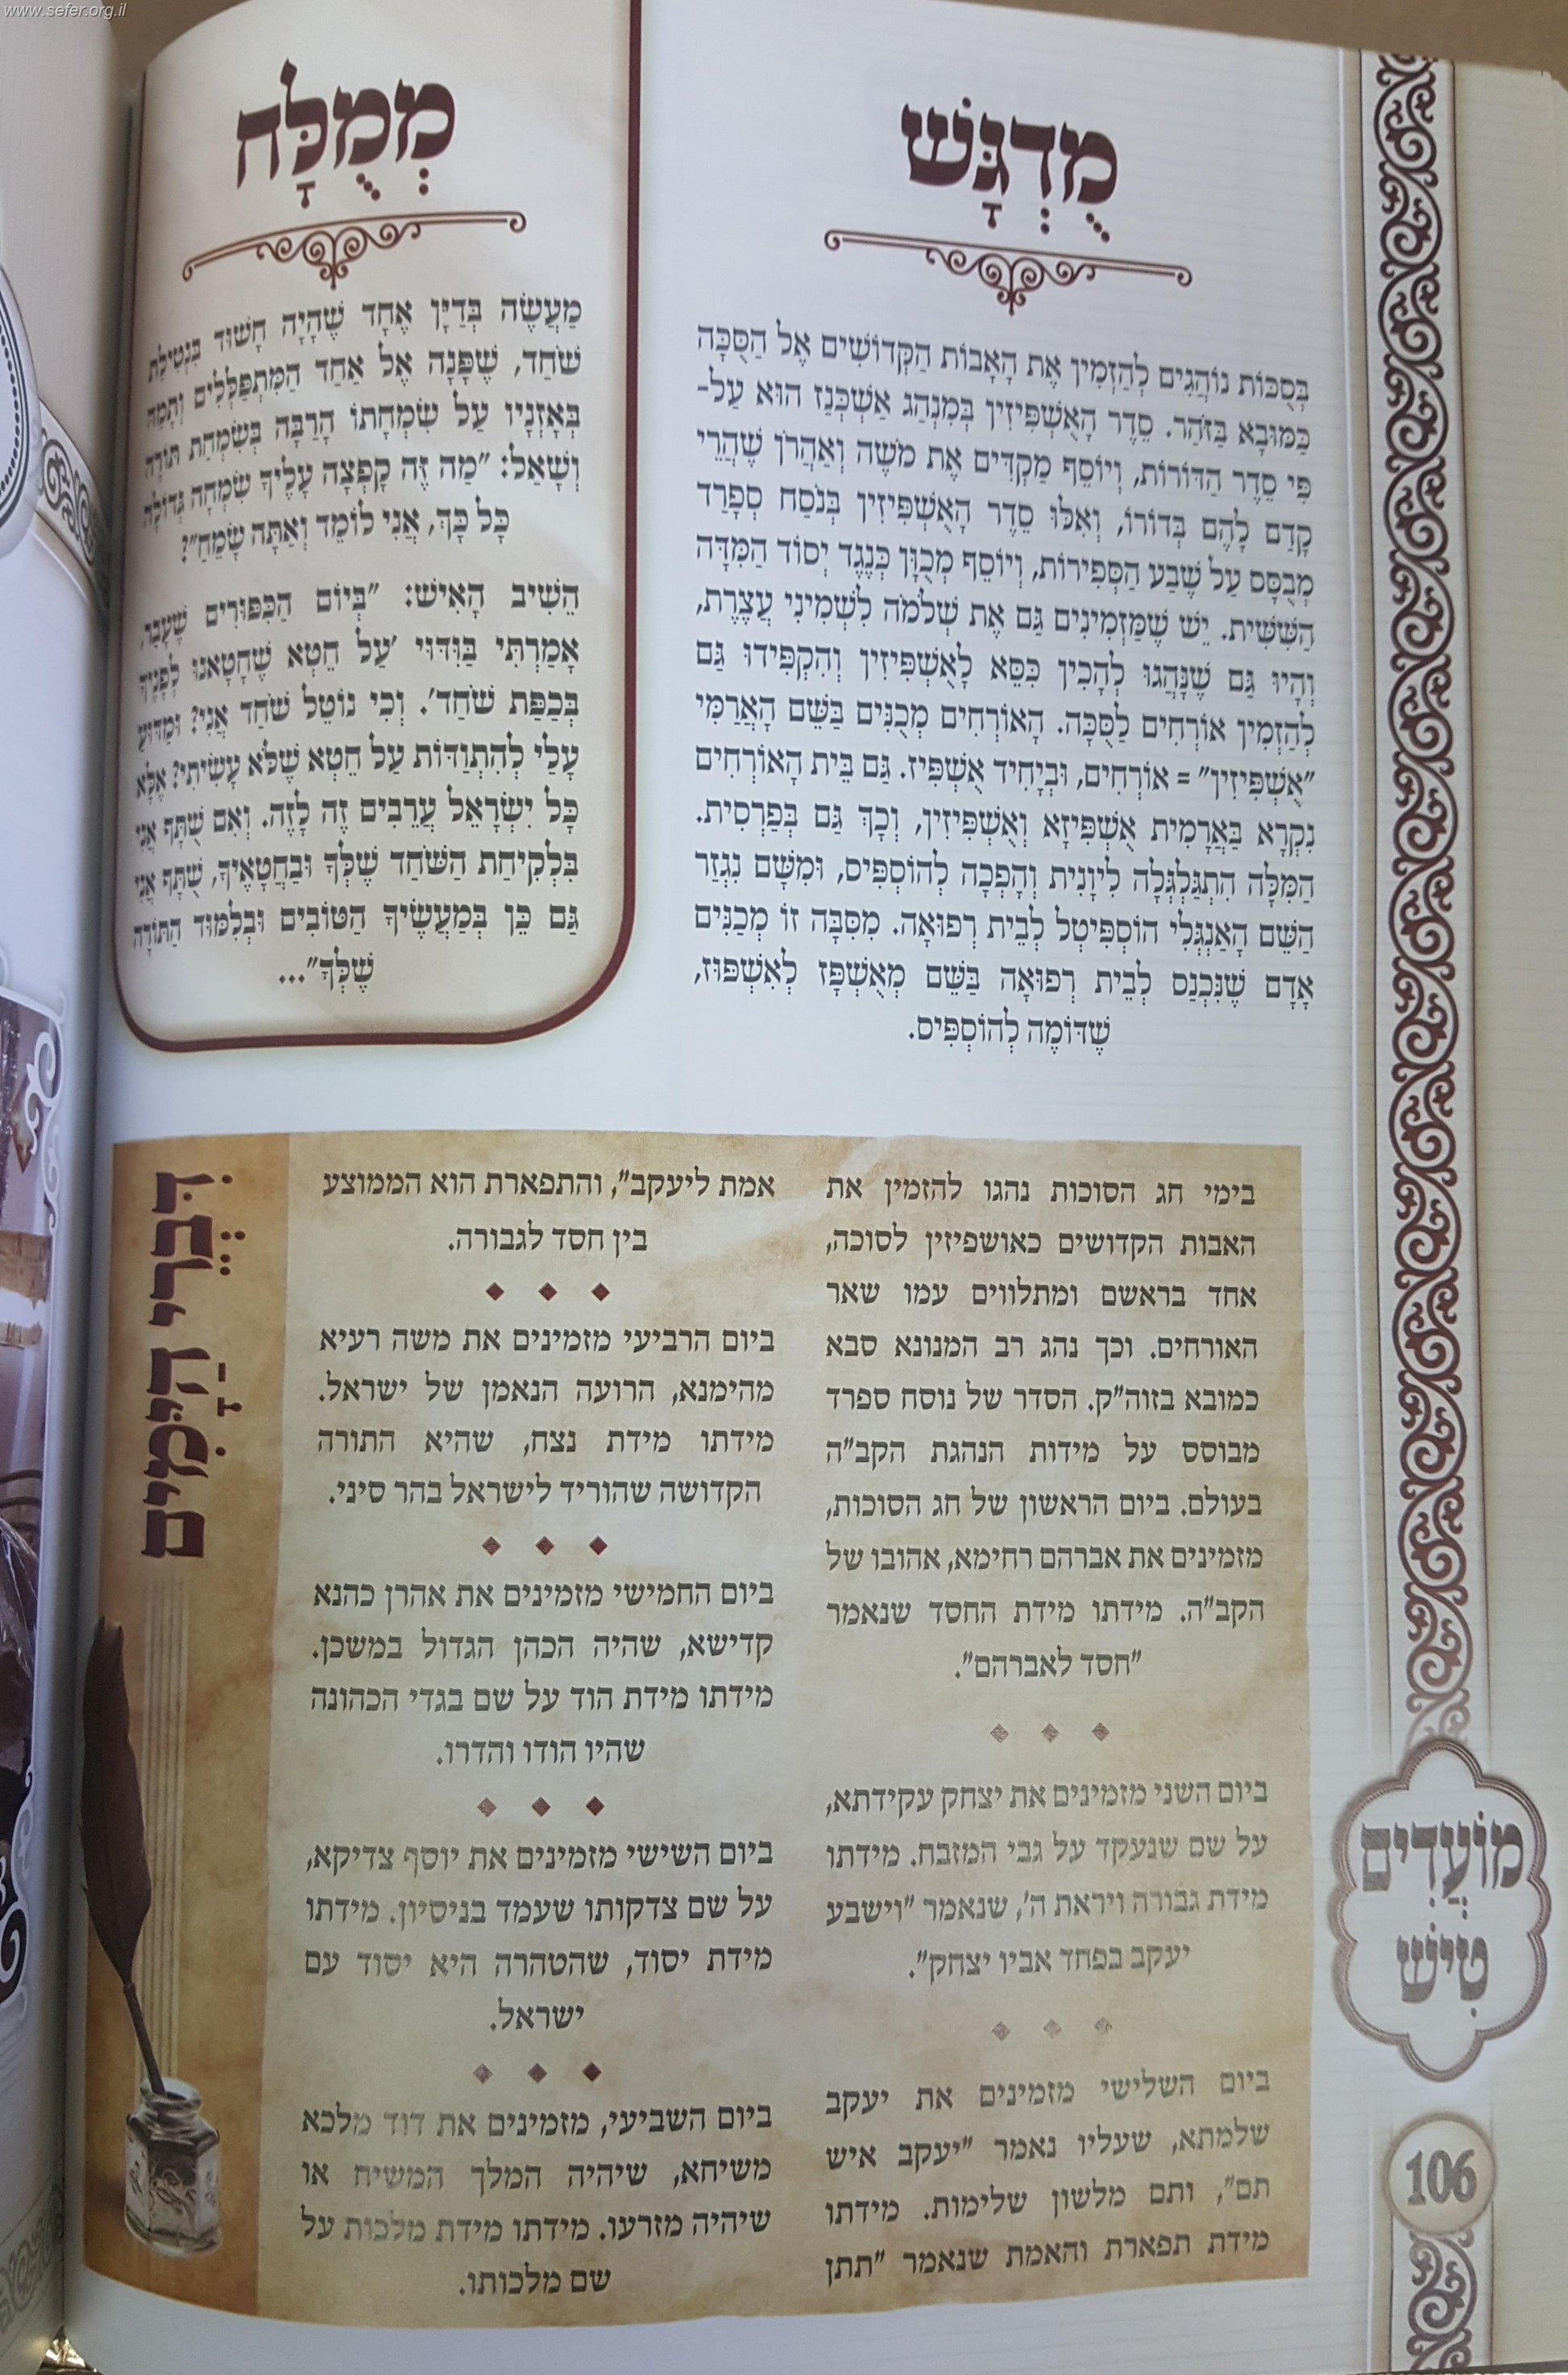 www.sefer.org.il
מֻדְגָּשׁ
בְּסֻכּוֹת נוֹהֲגִים לְהַזְמִין אֶת הָאָבוֹת הַקְּדוֹשִׁים אֶל הַסֻּכָּה
כַּמּוּבָא בַּזֹּהַר. סֵדֶר הָאֻשְׁפִּיזִין בְּמִנְהַג אַשְׁכְּנַז הוּא עַל-
פִּי סֵדֶר הַדּוֹרוֹת, וְיוֹסֵף מַקְדִּים אֶת מֹשֶׁה וְאַהֲרֹן שֶׁהֲרֵי
קָדַם לָהֶם בְּדוֹרוֹ, וְאִלּוּ סֵדֶר הָאֻשְׁפִּיזִין בְּנֹסַח סְפָרַד
מְבֻסָּס עַל שֶׁבַע הַסְּפִירוֹת, וְיוֹסֵף מְכֻוָּן כְּנֶגֶד יְסוֹד הַמִּדָּה
הַשִּׁשִּׁית. יֵשׁ שֶׁמַּזְמִינִים גַּם אֶת שְׁלֹמֹה לִשְׁמִינִי עֲצֶרֶת,
וְהָיוּ גַּם שֶׁנָּהֲגוּ לְהָכִין כִּסֵּא לָאֻשְׁפִּיזִין וְהִקְפִּידוּ גַּם
לְהַזְמִין אוֹרְחִים לַסֻּכָּה. הָאוֹרְחִים מְכֻנִּים בַּשֵּׁם הָאֲרַמִּי
"אֻשְׁפִּיזִין" = אוֹרְחִים, וּבְיָחִיד אֻשְׁפִּיז. גַּם בֵּית הָאוֹרְחִים
נִקְרָא בַּאֲרָמִית אֻשְׁפִּיזָא וְאֻשְׁפִּיזִין, וְכָךְ גַּם בְּפַרְסִית.
הַמִּלָּה הִתְגַּלְגְּלָה לִיוָנִית וְהָפְכָה לְהוֹסְפִּיס, וּמִשָּׁם נִגְזַר
הַשֵּׁם הָאַנְגְּלִי הוֹסְפִּיטְל לְבֵית רְפוּאָה. מִסִּבָּה זוֹ מְכַנִּים
אָדָם שֶׁנִּכְנַס לְבֵית רְפוּאָה בַּשֵּׁם מְאֻשְׁפָּז לְאִשְׁפּוּז,
שֶׁדּוֹמֶה לְהוֹסְפִּיס.
מְמֻלָּח
מַעֲשֶׂה בְּדַיָּן אֶחָד שֶׁהָיָה חָשׁוּד בִּנְטִילַת
שֹׁחַד, שֶׁפָּנָה אֶל אַחַד הַמִּתְפַּלְּלִים וְתָמַהּ
בְּאָזְנָיו עַל שִׂמְחָתוֹ הָרַבָּה בְּשִׂמְחַת תּוֹרָה
וְשָׁאַל: "מַה זֶּה קָפְצָה עָלֶיךָ שִׂמְחָה גְּדוֹלָה
כָּל כָּךְ, אֲנִי לוֹמֵד וְאַתָּה שָׂמֵחַ"?
הֵשִׁיב הָאִישׁ: "בְּיוֹם הַכִּפּוּרִים שֶׁעָבַר,
אָמַרְתִּי בַּוִּדּוּי 'עַל חֵטְא שֶׁחָטָאנוּ לְפָנֶיךָ
בְּכַפַּת שֹׁחַד'. וְכִי נוֹטֵל שֹׁחַד אֲנִי? וּמַדּוּעַ
עָלַי לְהִתְוַדּוֹת עַל חֵטְא שֶׁלֹּא עָשִׂיתִי? אֶלָּא
כָּל יִשְׂרָאֵל עֲרֵבִים זֶה לָזֶה. וְאִם שֻׁתָּף אֲנִי
בִּלְקִיחַת הַשֹּׁחַד שֶׁלְּךָ וּבַחֲטָאֶיךָ, שֻׁתָּף אֲנִי
גַּם כֵּן בְּמַעֲשֶׂיךָ הַטּוֹבִים וּבְלִמּוּד הַתּוֹרָה
שֶׁלְּךָ"...
דִּבְרֵי הַיָּמִים
בימי חג הסוכות נהגו להזמין את
האבות הקדושים כאושפיזין לסוכה,
אחד בראשם ומתלווים עמו שאר
האורחים. וכך נהג רב המנונא סבא
כמובא בזוה"ק. הסדר של נוסח ספרד
מבוסס על מידות הנהגת הקב"ה
בעולם. ביום הראשון של חג הסוכות,
מזמינים את אברהם רחימא, אהובו של
הקב"ה. מידתו מידת החסד שנאמר
"חסד לאברהם".
ביום השני מזמינים את יצחק עקידתא,
על שם שנעקד על גבי המזבח. מידתו
מידת גבורה ויראת ה', שנאמר "וישבע
יעקב בפחד אביו יצחק".
ביום השלישי מזמינים את יעקב
שלמתא, שעליו נאמר "יעקב איש
תם", ותם מלשון שלימות. מידתו
מידת תפארת והאמת שנאמר "תתן
אמת ליעקב", והתפארת הוא הממוצע
בין חסד לגבורה.
ביום הרביעי מזמינים את משה רעיא
מהימנא, הרועה הנאמן של ישראל.
מידתו מידת נצח, שהיא התורה
הקדושה שהוריד לישראל בהר סיני.
ביום החמישי מזמינים את אהרן כהנא
קדישא, שהיה הכהן הגדול במשכן.
מידתו מידת הוד על שם בגדי הכהונה
שהיו הודו והדרו.
ביום השישי מזמינים את יוסף צדיקא,
על שם צדקותו שעמד בניסיון. מידתו
מידת יסוד, שהטהרה היא יסוד עם
ישראל.
ביום השביעי, מזמינים את דוד מלכא
משיחא, שיהיה המלך המשיח או
שיהיה מזרעו. מידתו מידת מלכות על
שם מלכותו.
מוֹעֲדִים
טִישׁ
106